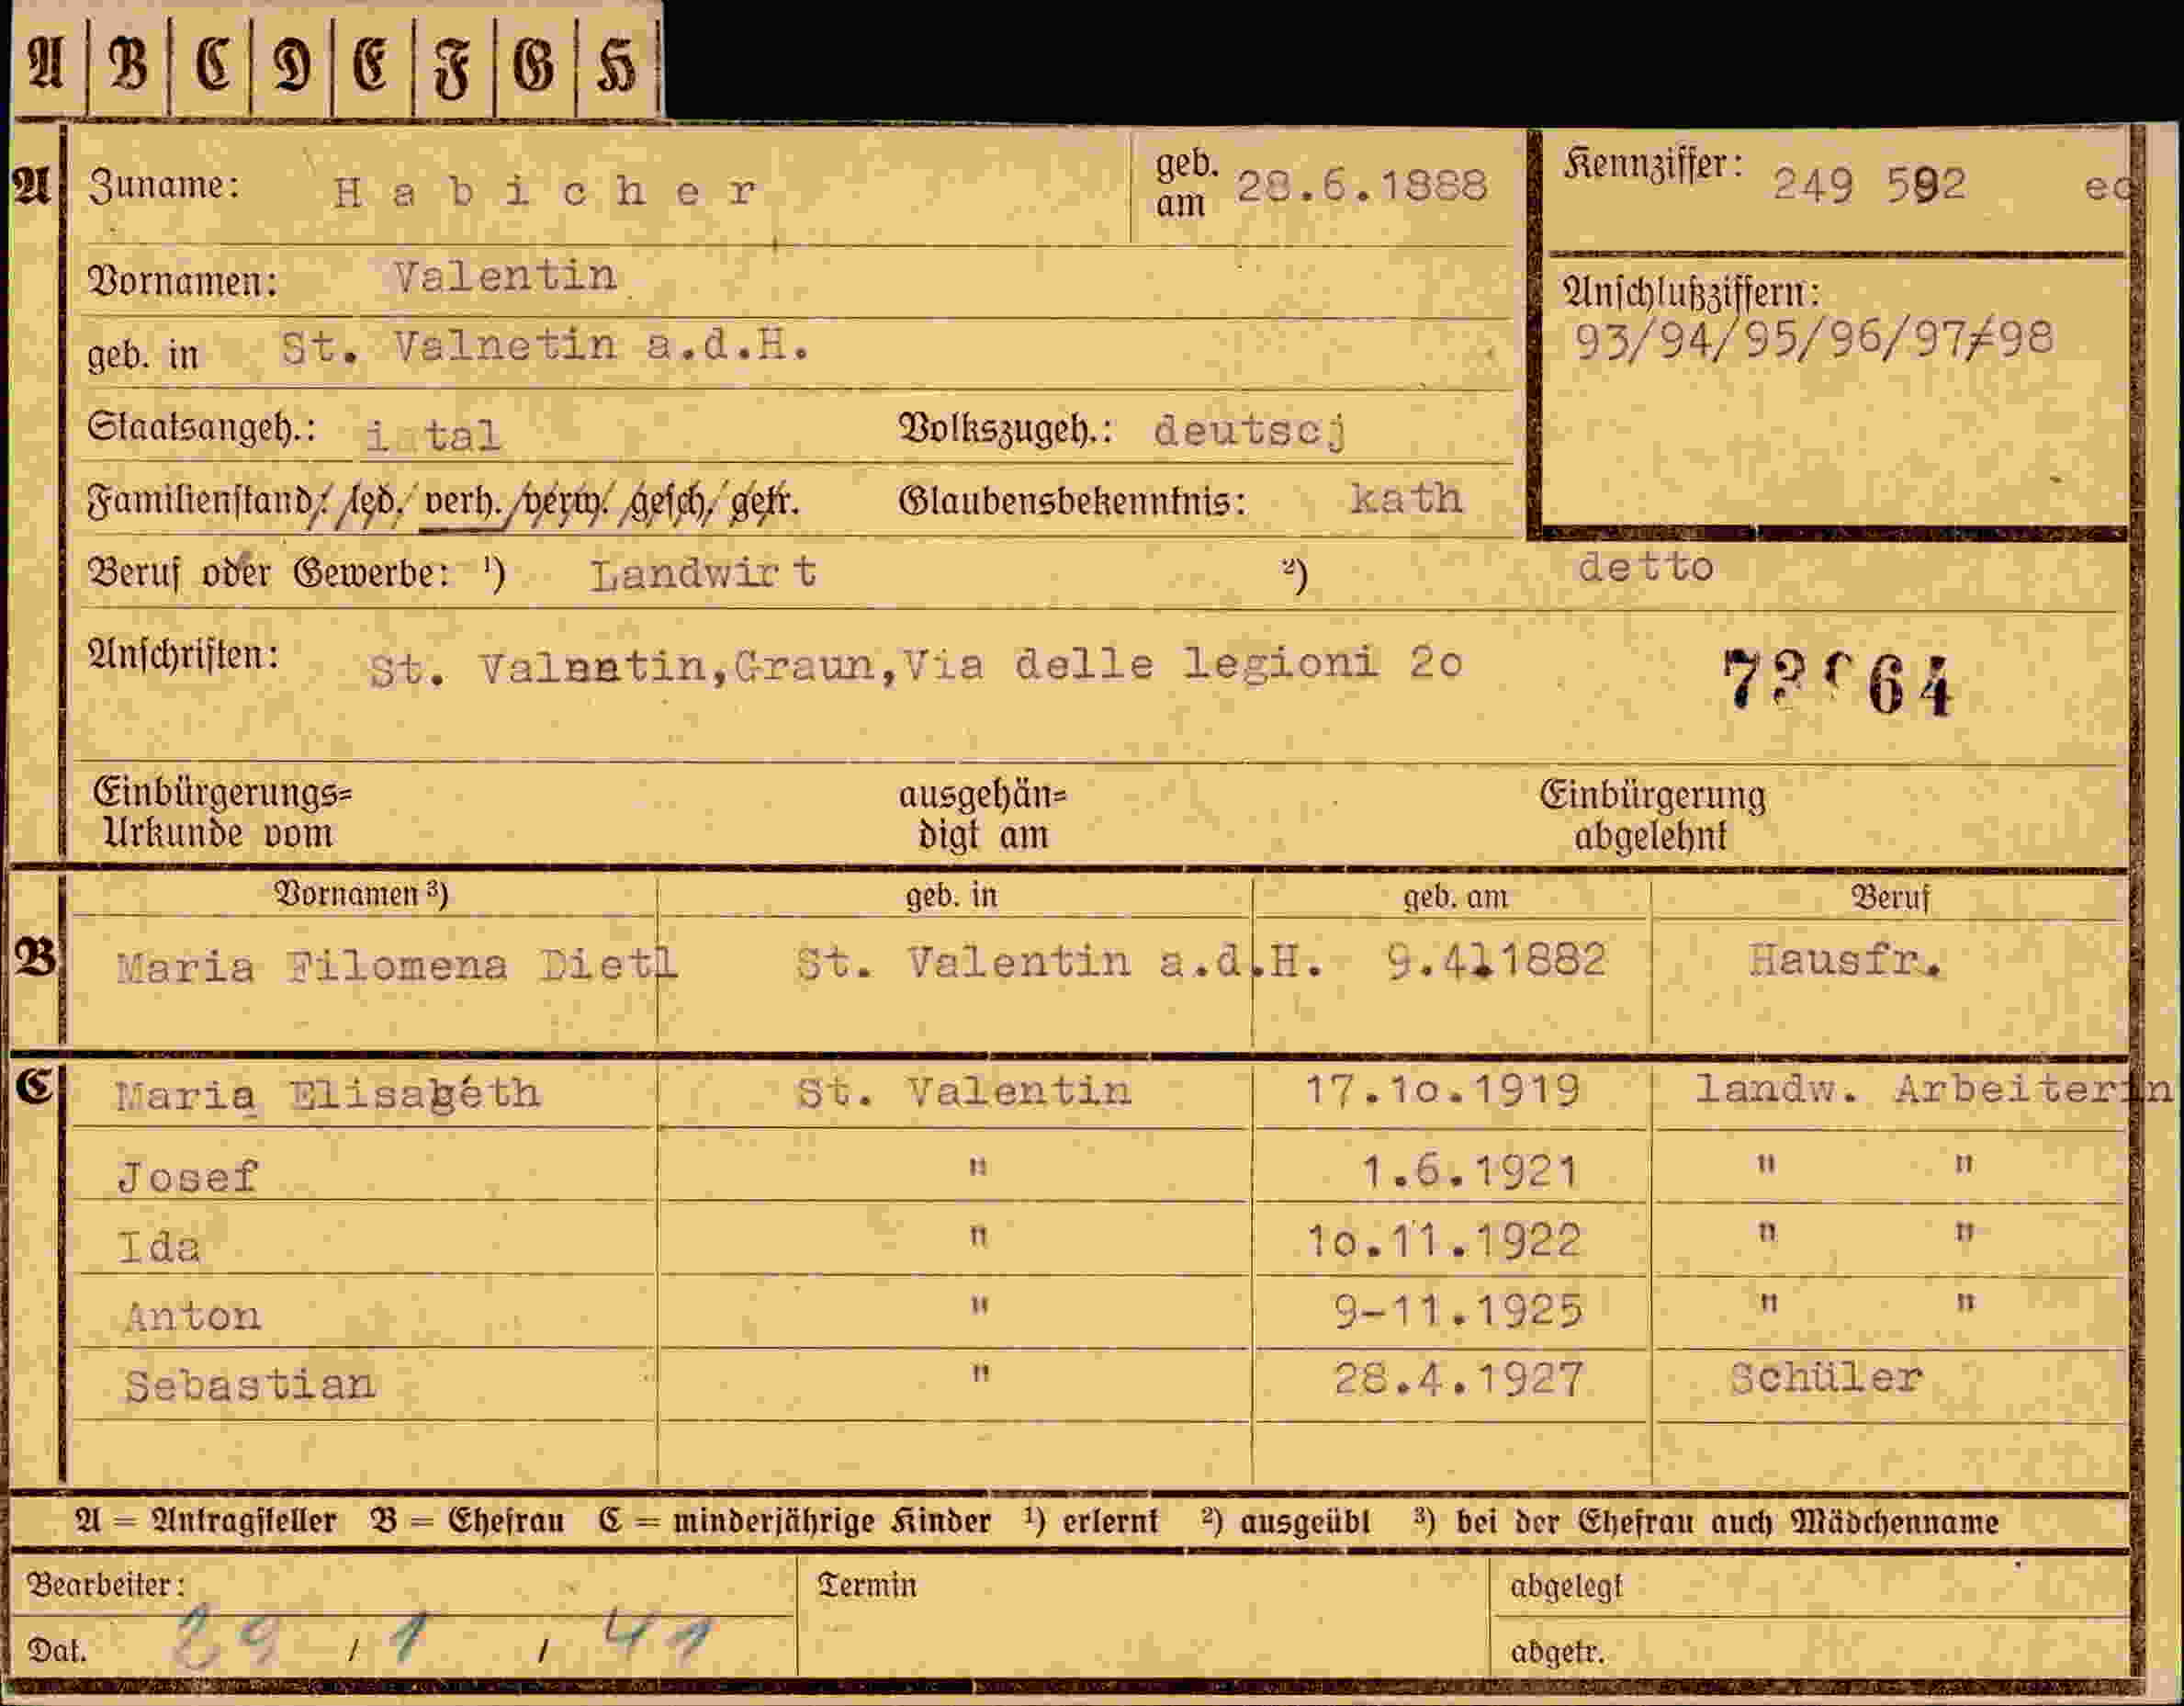 A B C D E F G H
A Zuname: Habicher geb. am 28.6.1888 Kennziffer: 249 592
Vornamen: Valentin
geb. in St. Valnetin a.d.H. Anschlußziffern:
93/94/95/96/97/98
Staatsangeh.: i tal Volkszugeh.: deutscj
Familienstand: led. verh. verw. gesch. getr. Glaubensbekenntnis: kath
Beruf oder Gewerbe: ¹) Landwirt ²) detto
Anschriften: St. Valentin, Graun, Via delle legioni 2o
Einbürgerungs= ausgehän= Einbürgerung
Urkunde vom digt am abgelehnt
Vornamen ³) geb. in geb. am Beruf
B Maria Filomena Dietl St. Valentin a.d.H. 9.4.1882 Hausfr.
C Maria Elisabeth St. Valentin 17.1o.1919 landw. Arbeiterin
Josef " 1.6.1921 " "
Ida " 1o.11.1922 " "
Anton " 9-11.1925 " "
Sebastian " 28.4.1927 Schüler
A = Antragsteller B = Ehefrau C = minderjährige Kinder ¹) erlernt ²) ausgeübt ³) bei der Ehefrau auch Mädchenname
Bearbeiter: Termin abgelegt
Dat. 29 / 1 / 41 abgetr.